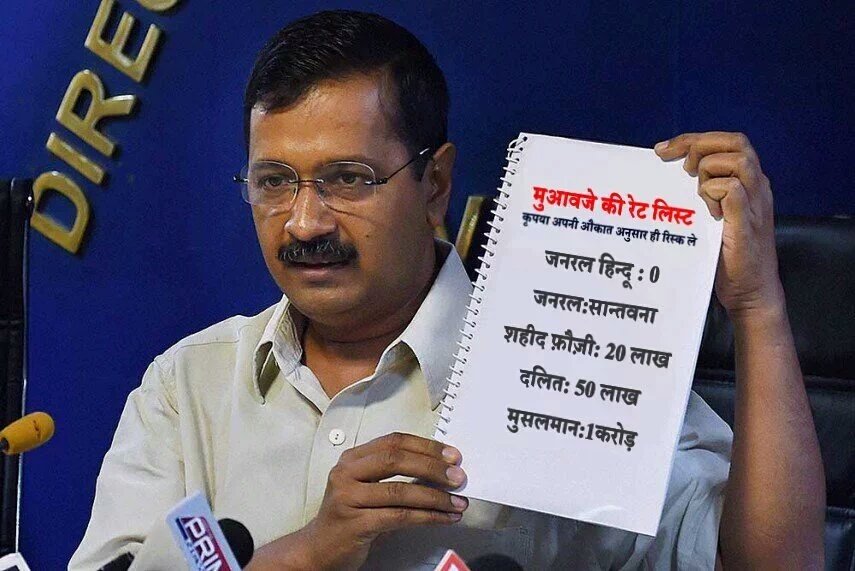 DIREC
मुआवजे की रेट लिस्ट
कृपया अपनी औकात अनुसार ही रिस्क ले
जनरल हिन्दू : 0
जनरल:सान्तवना
शहीद फ़ौज़ी: 20 लाख
दलित: 50 लाख
मुसलमान:1करोड़
PRIM